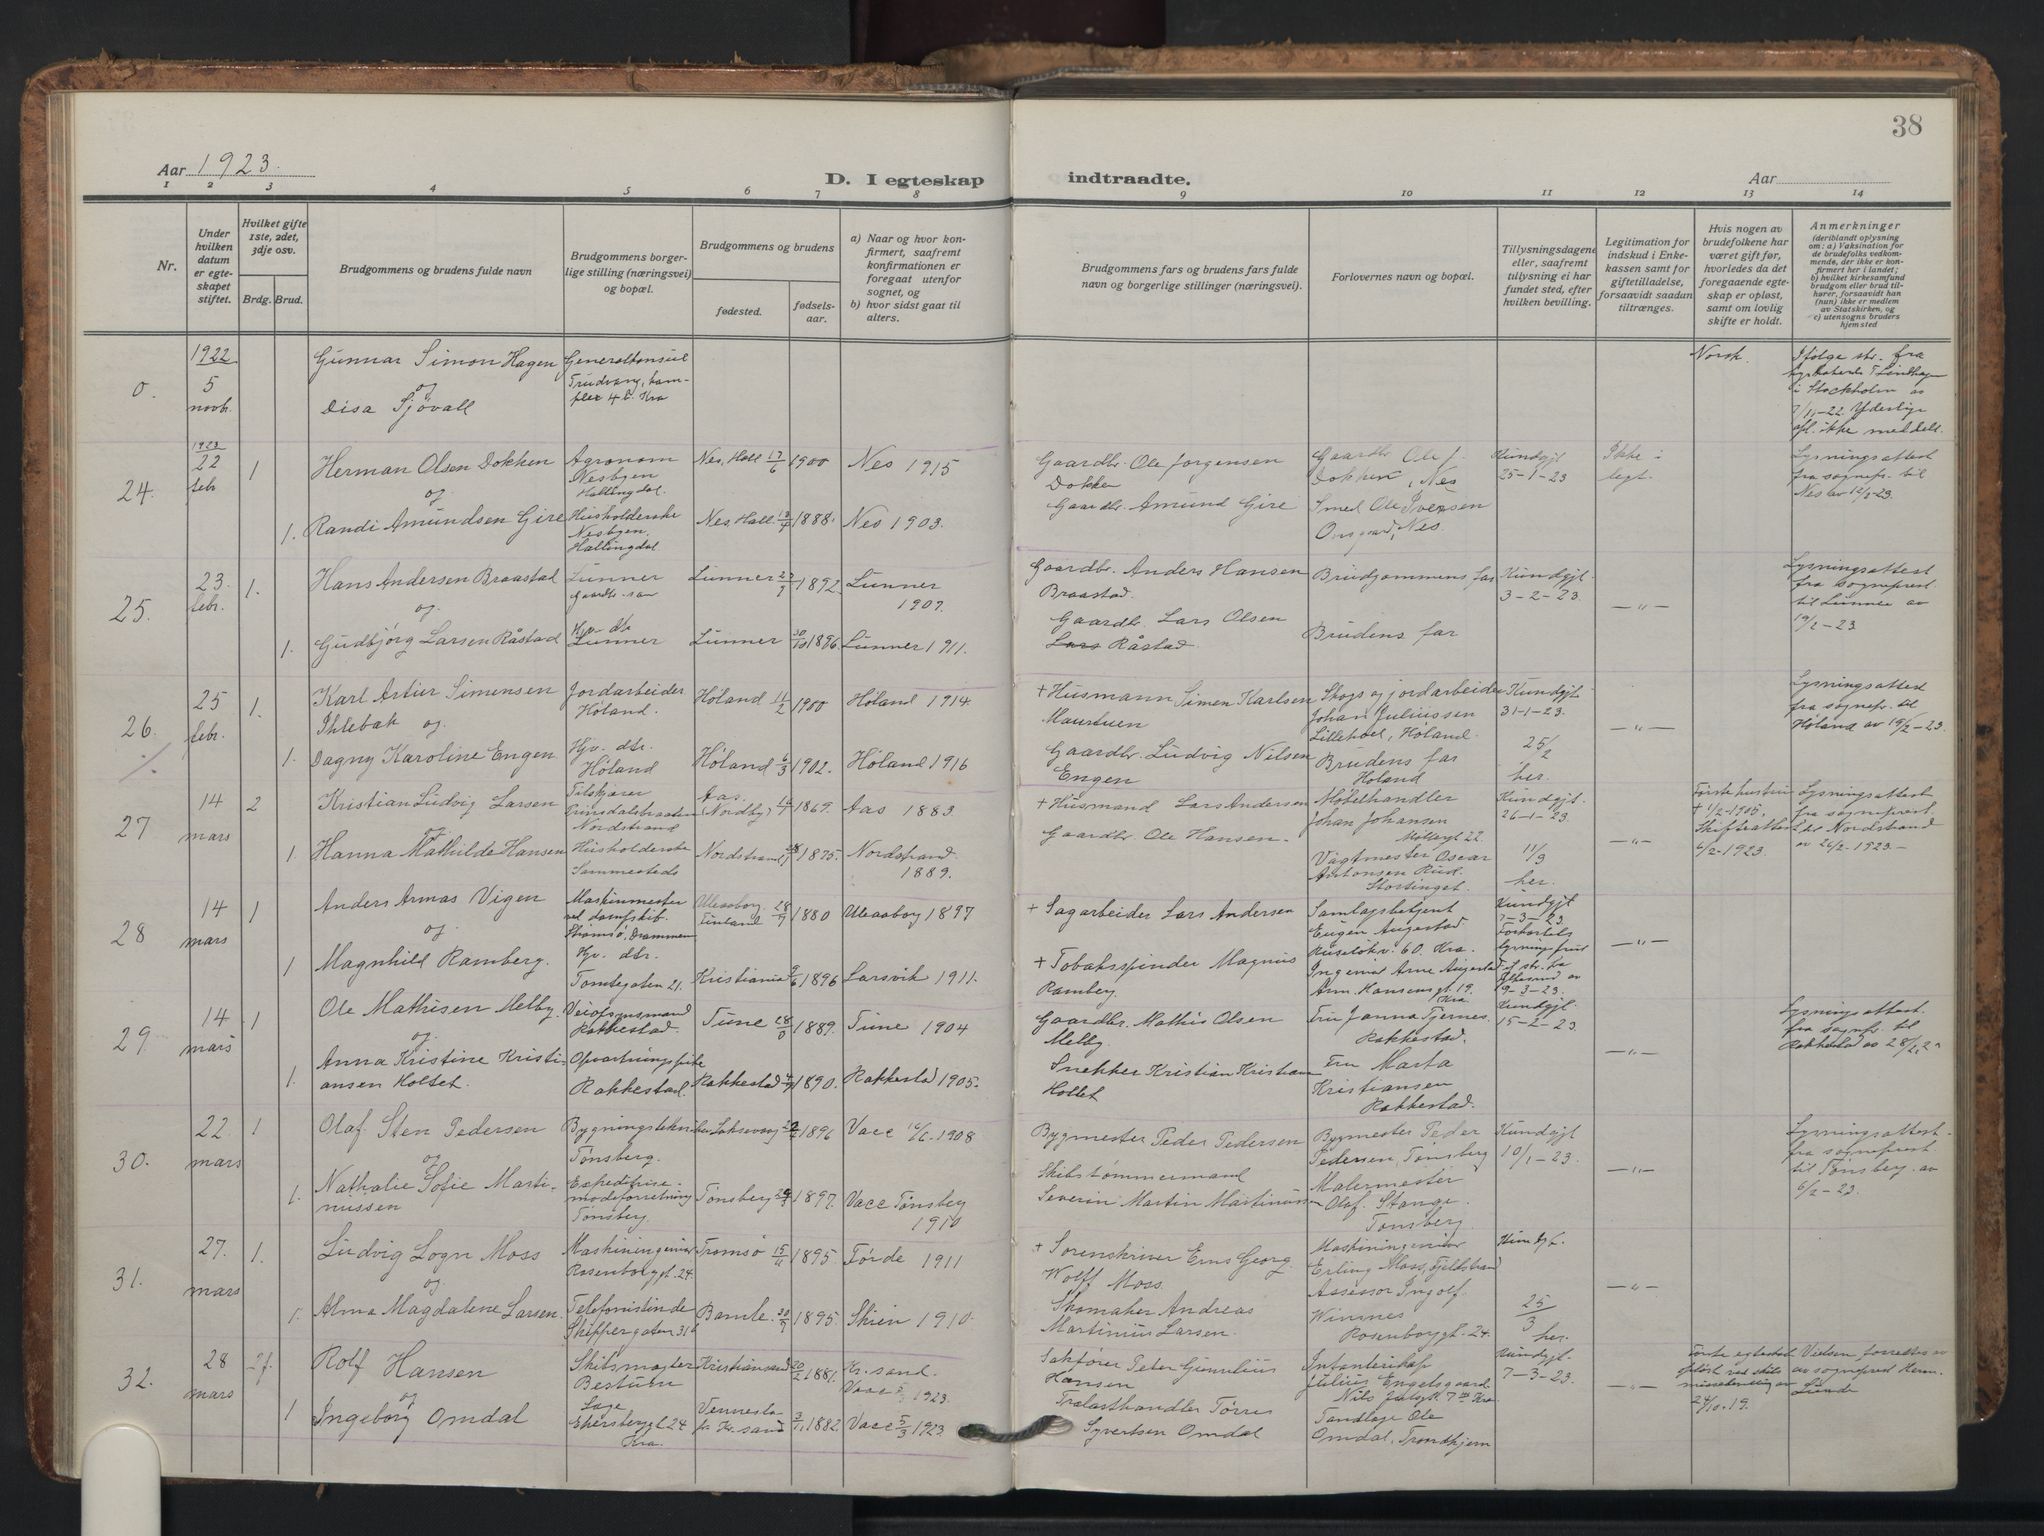 38
Aar 1923.
D. I egteskap indtraadte.
Aar
1 2 3 4 5 6 7 8 9 10 11 12 13 14
Nr.
Under hvilken datum er egteskapet stiftet.
Hvilket gifte 1ste, 2det, 3dje osv.
Brdg. Brud.
Brudgommens og brudens fulde navn
Brudgommens borgerlige stilling (næringsvei) og bopæl.
Brudgommens og brudens
fødested.
fødselsaar.
a) Naar og hvor konfirmert, saafremt konfirmationen er foregaat utenfor sognet, og
b) hvor sidst gaat til alters.
Brudgommens fars og brudens fars fulde navn og borgerlige stillinger (næringsvei).
Forlovernes navn og bopæl.
Tillysningsdagene eller, saafremt tillysning ei har fundet sted, efter hvilken bevilling.
Legitimation for indskud i Enkekassen samt for giftetilladelse, forsaavidt saadan tiltrænges.
Hvis nogen av brudefolkene har været gift før, hvorledes da det foregaaende egteskap er opløst, samt om lovlig skifte er holdt.
Anmerkninger
(deriblandt oplysning om: a) Vaksination for de brudefolks vedkommende, der ikke er konfirmert her i landet;
b) hvilket kirkesamfund brudgom eller brud tilhører, forsaavidt han (hun) ikke er medlem av Statskirken, og
c) utensogns bruders hjemsted
0. 1922 5 novb.
Gunnar Simon Hagen
og
Disa Sjövall
Generalkonsul
Norsk.
Ifølge skr. fra
i Stockholm av
7/11-22. Yderlige
opl. ikke meddelt.
24. 1923 22 febr 1
Herman Olsen Dokken
og
1. Randi Amundsen Gire
Agronom
Nesbyen
Hallingdal.
Husholderske
Nesbyen.
Hallingdal.
Nes, Hall 17/6 1900 Nes 1915
Nes, Hall. 1888. Nes 1903.
Gaardbr. Ole Jorgensen
Dokken
Gaardbr. Amund Gire
Gaardbr Ole J.
Dokken, Nes
Smed Ole Iversen
Nes.
Kundgjt
25-1-23
Ikke i
legt.
Lysningsattest
fra sognepr. til
Nes av 12/2-23.
25. 23. febr. 1.
Hans Andersen Braastad
og
1. Gudbjörg Larsen Råstad
Lunner
Gaardbr. søn
Hjv. dtr
Lunner
Lunner 1892. Lunner
1907.
Lunner 30/10 1896. Lunner 1911.
Gaardbr. Anders Hansen
Braastad.
Gaardbr. Lars Olsen
Lars Råstad.
Brudgommens far
Brudens far
Kundgjt.
3-2-23.
—"—
Lysningsattest
fra sogneprest.
til Lunner av
19/2-23
26. 25 febr. 1.
Karl Artur Simensen
Ihlebak og.
1. Dagny Karoline Engen
Jordarbeider
Höland.
Hjv. dtr.
Höland
Höland 11/2 1900 Höland 1914
Höland 6/3 1902. Höland 1916
+ Husmann Simen Karlsen
Gaardbr. Ludvig Nilsen
Engen
Skogs og jordarbeider
Johan Juliussen
Höland.
Brudens far
Höland
Kundgjt
31-1-23.
25/2
her.
—"—
Lysningsattest
fra sognepr. til
Höland av 19/2-23.
27 14 mars 2
Kristian Ludvig Larsen
og
1 Hanna Mathilde Hansen
Nordstrand
Husholderske
Sammesteds
Aas.
(Nordby) 1869. Aas 1883.
Nordstrand 1875. Nordstrand.
1889.
+ Husmand Lars Andersen
Gaardbr. Ole Hansen.
Möbelhandler
Johan Johansen
Möllergt 22.
Vagtmester Oscar
Antonsen Rud.
Stortinget.
Kundgjt.
26-1-23.
11/3
her.
—"—
Første hustru
+ 1/2-1905.
Skifteattest
6/2-1923
Lysningsattest
fra sogneprest.
til Nordstrand
av 26/2-1923.-
28 14 mars 1
Anders Armas Vigen
og
1 Magnhild Ramberg.
Maskinmester
ved dampskib.
Strömsö, Drammen
Hjv. dtr.
Tomtegaten 21.
Uleaborg
Finland 28/9 1880 Uleaborg 1897
Kristiania 9/6 1896 Larvik 1911.
+ Sagarbeider Lars Andersen
+ Tobaksspinder Magnus
Ramberg
Samlagsbetjent
Eugen Augestad
Ruselökv. 60. Kra.
Ingeniör Arne Augestad
Arn. Hansens gt. 19.
Kra.
Kundgjt
7-3-23.
9-3-23.
—"—
29. 14 mars 1
Ole Mathisen Melby.
og
1. Anna Kristine Kristiansen
Holtet.
Veiopsynsmand
Rakkestad.
Opvartningspike
Rakkestad.
Tune 1889. Tune 1904
Rakkestad 1890. Rakkestad 1905.
Gaardbr. Mathis Olsen
Melby.
Snekker Kristian Kristiansen
Holtet
Fru Janna Tjernes.
Rakkestad.
Fru Marta
Kristiansen
Rakkestad.
Kundgjt
15-2-23.
—"—
Lysningsattest.
fra sognepr. til
30. 22. mars 1
Olaf Sten Pedersen
og
1. Nathalie Sofie Martinussen
Bygningstekniker
Tönsberg.
Expeditrise
modeforretning
Tönsberg.
1896 Vace 1908
Tönsberg 1897. Vace Tönsberg
1910
Bygmester Peder Pedersen
Skibstömmermand
Severin Martin Martinussen
Bygmester Peder
Pedersen, Tönsberg
Malermester
Olaf Stange.
Tönsberg
Kundgjt
10/1-23.
—"—
Lysningsattest.
fra sogneprest
til Tönsberg. av
6/2-23.
31. 27. mars 1.
Ludvig Sogn Moss
og
1. Alma Magdalene Larsen.
Maskiningeniör
Rosenborggt. 24.
Telefonistinde
Skippergaten 31 b
Tromsö 1895 Förde 1911
Bamle. 30/9 1895. Skien 1910.
+ Sorenskriver Ernst Georg
Wolff Moss.
Skomaker Andreas
Martinius Larsen.
Maskiningeniör
Erling Moss,
Assessor Ingolf
Winsnes
Rosenborggt. 24.
Kundgjt.
25/3
her.
—"—
32. 28 mars 2 f.
Rolf Hansen
og
1 Ingeborg Omdal
Skibsmægler
Bestum
Læge
Ekersbergt 24
Kra.
Kristiansand 20/2 1881. Kr. sand.
Vace 5/3 1923.
Vennesla
pr. Kr.sand 3/11 1882. Vace 5/3 1923.
Sakförer Peter
Hansen
Trælasthandler Törres
Syvertsen Omdal
Julius Engelsgaard
Nils Juelsgt. 7 Kra.
Tandlæge Ole
Omdal, Trondhjem
Kundgjt.
7-3-23.
—"—
24/10-19.
Vielsen forrettes av
av sogneprest Herm.
Lunde